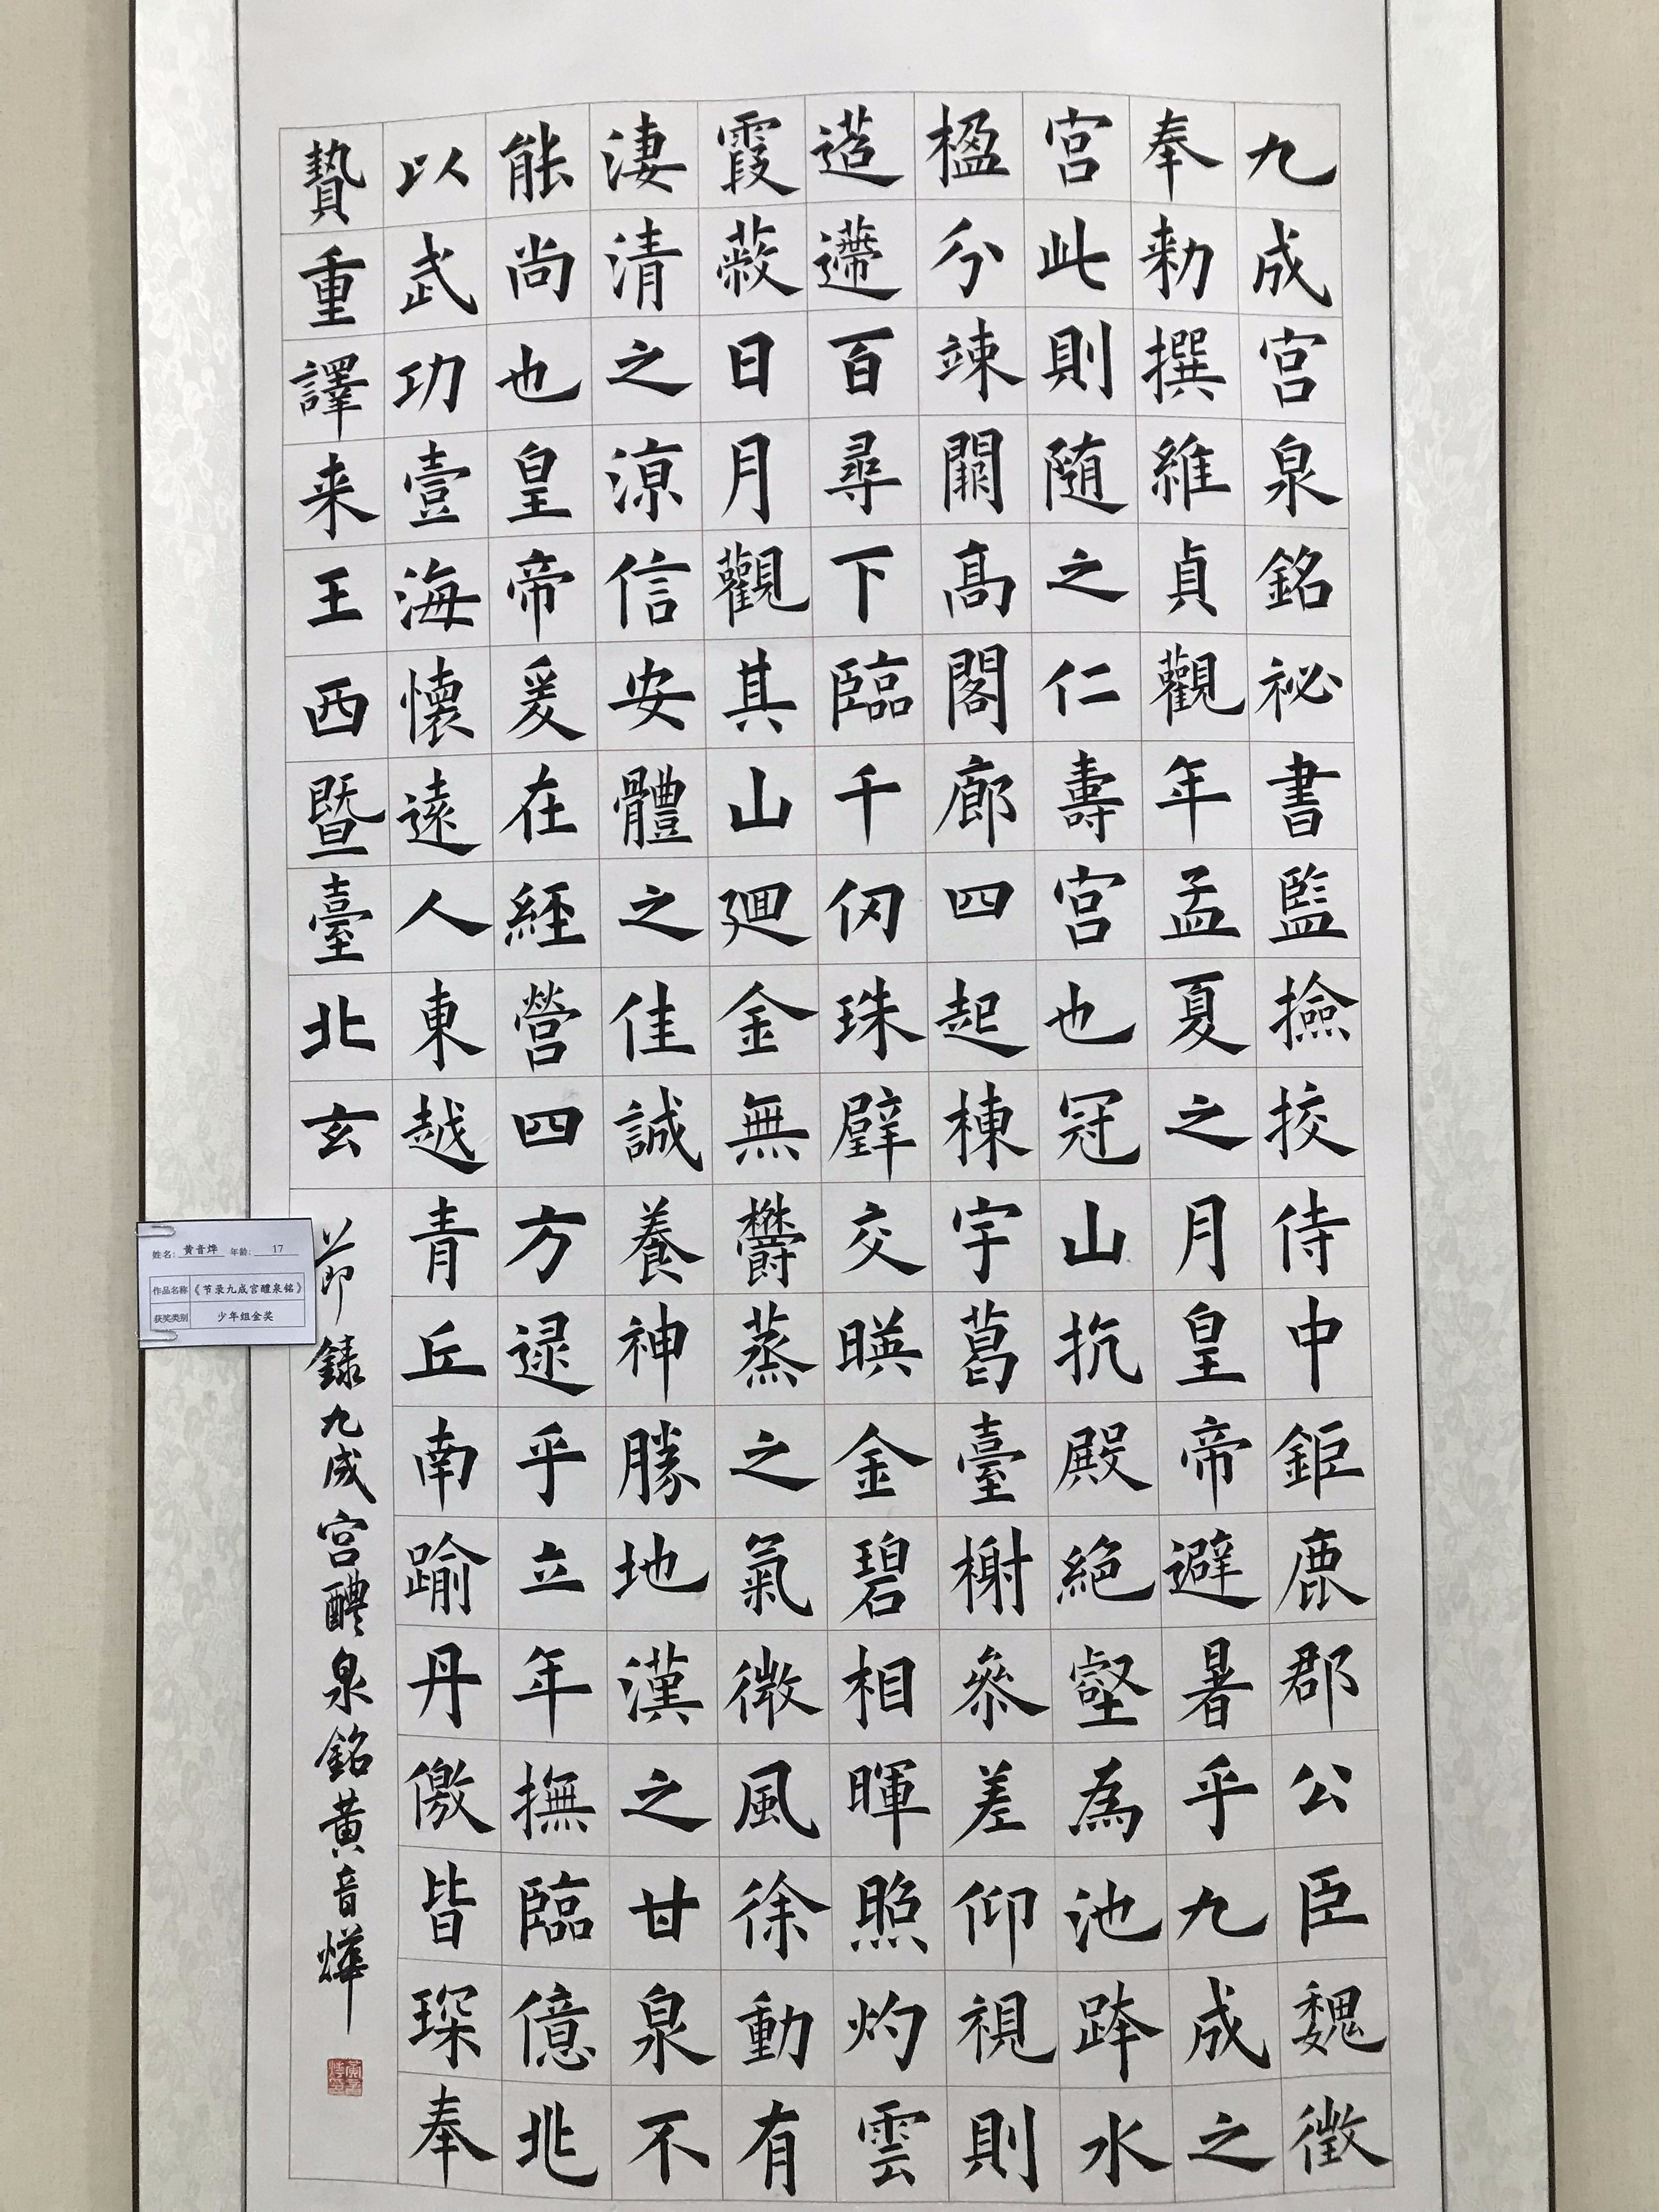 九成宫泉銘祕書監撿挍侍中鉅鹿郡公臣魏徵
奉勑撰維貞觀年孟夏之月皇帝避暑乎九成之
宫此則随之仁壽宫也冠山抗殿絶壑為池跨水
楹分竦闕高閣廊四起棟宇葛臺榭叅差仰視則
迢遰百尋下臨千仞珠璧交暎金碧相暉照灼雲
霞蔽日月觀其山廻金無欝蒸之氣微風徐動有
淒清之凉信安體之佳誠養神勝地漢之甘泉不
能尚也皇帝爰在經營四方逯乎立年撫臨億兆
以武功壹海懷遠人東越青丘南踰丹徼皆琛奉
贄重譯来王西暨臺北玄
節録九成宫醴泉銘黄音燁
姓名：黄音烨 年龄：17
作品名称《节录九成宫醴泉铭》
获奖类别 少年组金奖